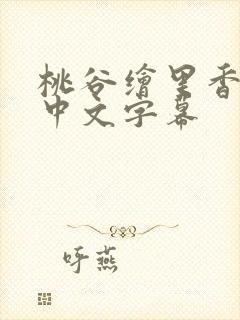 桃谷繪里香
中文字幕
呼燕